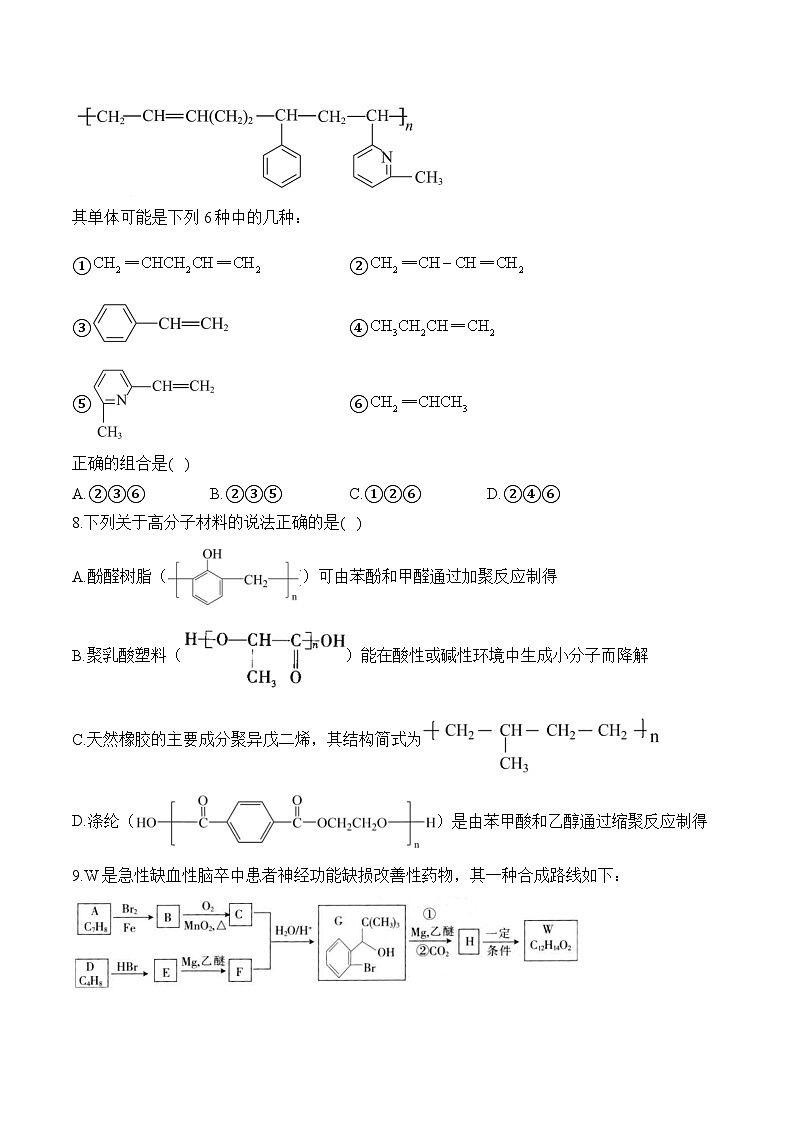 [CH₂—CH═CH(CH₂)₂—CH—CH₂—CH]n
N
CH₃
其单体可能是下列6种中的几种：
①CH₂═CHCH₂CH═CH₂ ②CH₂═CH–CH═CH₂
③ —CH═CH₂ ④CH₃CH₂CH═CH₂
⑤ N —CH═CH₂ ⑥CH₂═CHCH₃
CH₃
正确的组合是( )
A.②③⑥ B.②③⑤ C.①②⑥ D.②④⑥
8.下列关于高分子材料的说法正确的是( )
OH
A.酚醛树脂（[ —CH₂—]n）可由苯酚和甲醛通过加聚反应制得
B.聚乳酸塑料（H[O—CH—C]nOH）能在酸性或碱性环境中生成小分子而降解
CH₃ O
C.天然橡胶的主要成分聚异戊二烯，其结构简式为[CH₂—CH—CH₂—CH₂]n
CH₃
O O
D.涤纶（HO[C— —C—OCH₂CH₂O]nH）是由苯甲酸和乙醇通过缩聚反应制得
9.W是急性缺血性脑卒中患者神经功能缺损改善性药物，其一种合成路线如下：
A C₇H₈ Br₂ Fe B O₂ MnO₂,△ C
H₂O/H⁺ G C(CH₃)₃ OH Br ① Mg,乙醚 ②CO₂ H 一定 条件 W C₁₂H₁₄O₂
D C₄H₈ HBr E Mg,乙醚 F